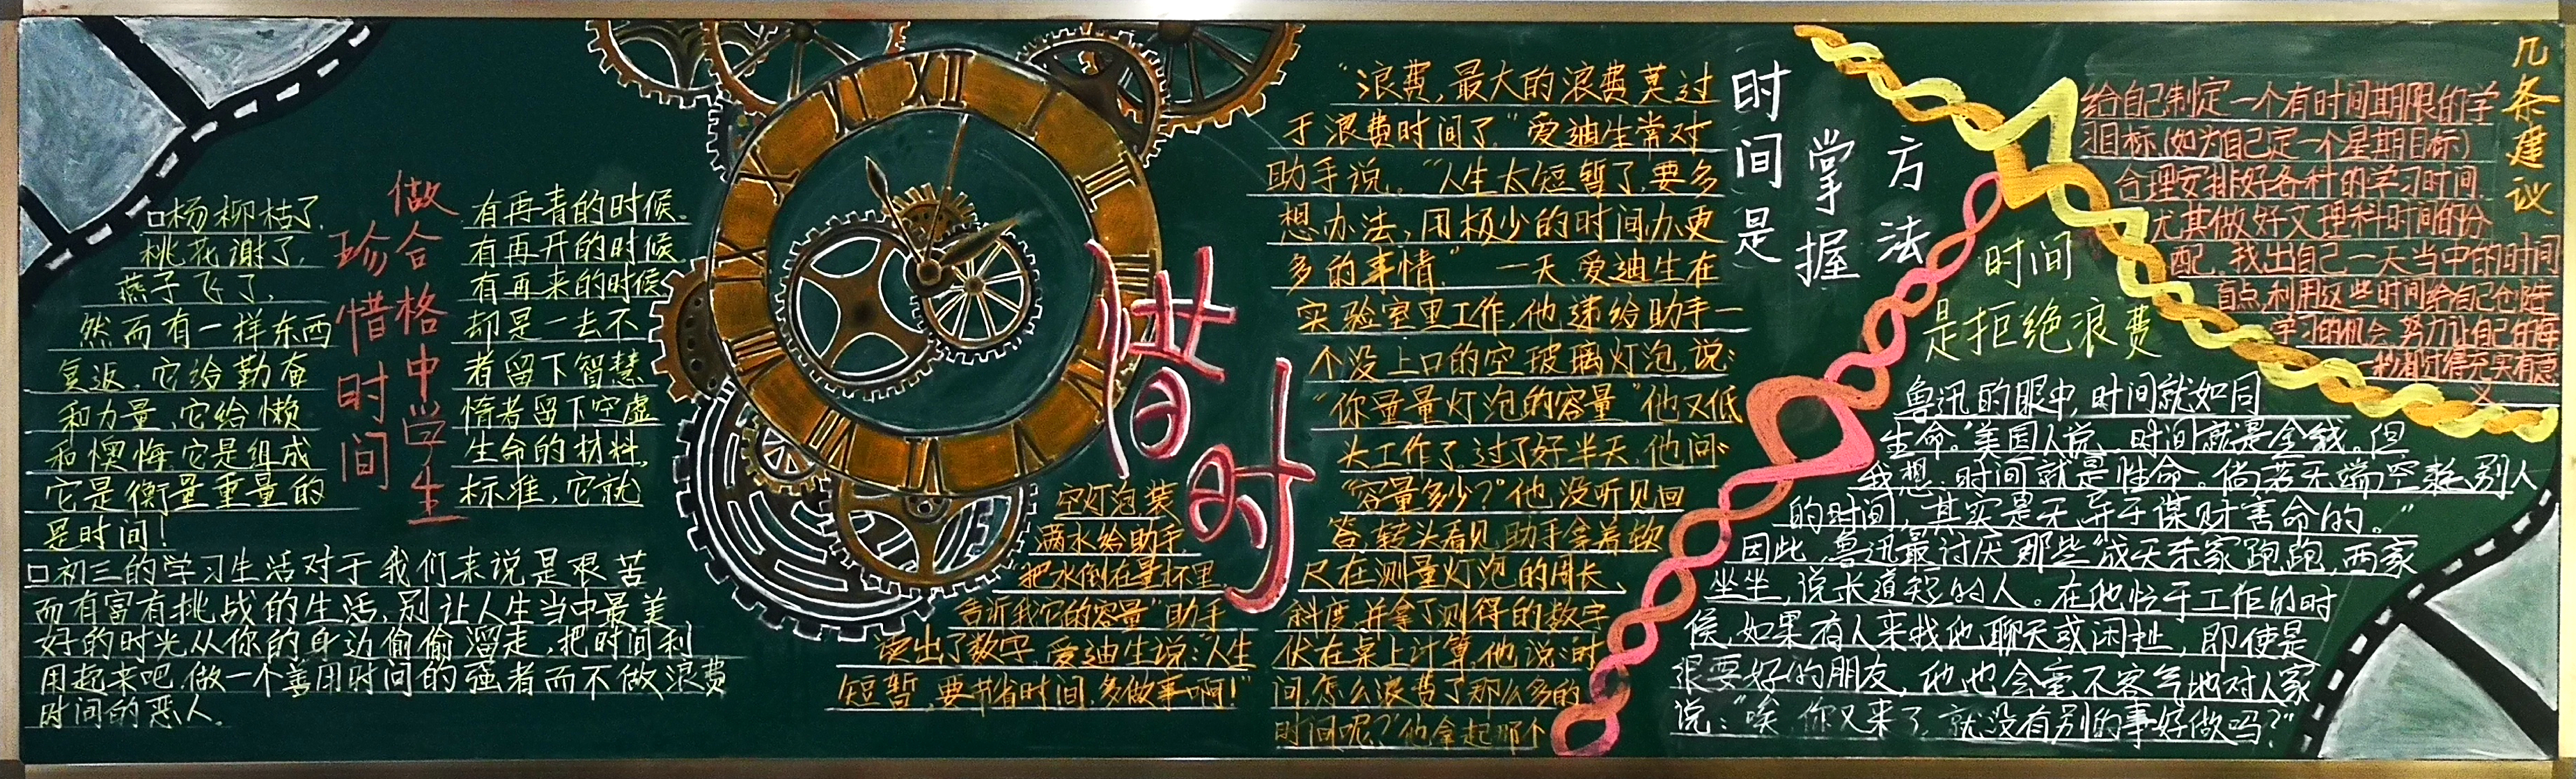 做合格中学生
珍惜时间
口杨柳枯了,有再青的时候.
桃花谢了,有再开的时候
燕子飞了,有再来的时候
然而有一样东西却是一去不
复返,它给勤奋者留下智慧
和力量,它给懒惰者留下空虚
和懊悔.它是组成生命的材料,
它是衡量重量的标准,它就
是时间!
口初三的学习生活对于我们来说是艰苦
而有富有挑战的生活,别让人生当中最美
好的时光从你的身边偷偷溜走,把时间利
用起来吧.做一个善用时间的强者而不做浪费
时间的恶人.
惜时
“浪费,最大的浪费莫过
于浪费时间了”爱迪生常对
助手说。“人生太短暂了,要多
想办法,用极少的时间办更
多的事情”一天,爱迪生在
实验室里工作,他递给助手一
个没上口的空玻璃灯泡,说:
“你量量灯泡的容量”他又低
头工作了.过了好半天,他问:
“容量多少?”他没听见回
答,转头看见助手拿着软
尺在测量灯泡的周长、
斜度,并拿了测得的数字
伏在桌上计算.他说:时
间,怎么浪费了那么多的
时间呢?”他拿起那个
空灯泡装
满水给助手,
把水倒在量杯里,
告诉我它的容量”助手
读出了数字.爱迪生说:“人生
短暂,要节省时间,多做事啊!”
时间是
掌握
方法
时间
是拒绝浪费
鲁迅的眼中,时间就如同
生命.“美国人说,时间就是金钱。但
我想:时间就是性命。倘若无端空耗别人
的时间,其实是无异于谋财害命的。”
因此,鲁迅最讨厌那些“成天东家跑跑,西家
坐坐,说长道短的人。在他忙于工作的时
候,如果有人来找他聊天或闲扯,即使是
很要好的朋友,他也会毫不客气地对人家
说:“唉,你又来了,就没有别的事好做吗?”
几条建议
给自己制定一个有时间期限的学
习目标,(如为自己定一个星期目标)
合理安排好各科的学习时间.
尤其做好文理科时间的分
配,找出自己一天当中的时间
盲点,利用这些时间给自己创造
学习的机会.努力让自己的每
秒都过得充实有意
义